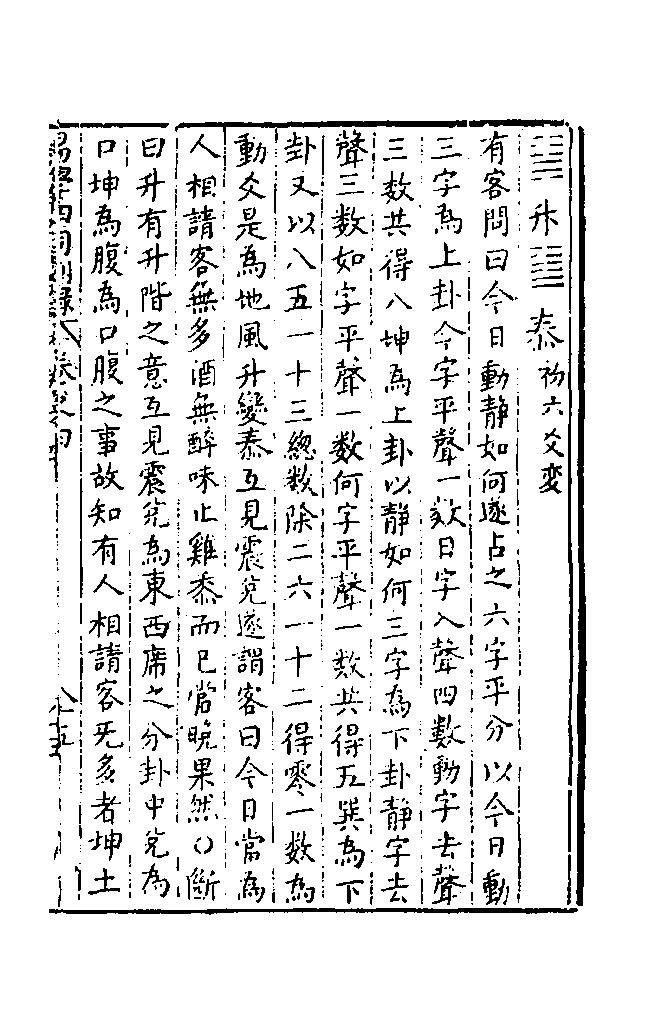 升 泰 初六爻変
有客問曰今日動静如何遂占之六字平分以今日動
三字為上卦今字平聲一数日字入聲四數動字去聲
三数共得八坤為上卦以静如何三字為下卦静字去
聲三数如字平聲一数何字平聲一数共得五巽為下
卦又以八五一十三總数除二六一十二得零一数為
動爻是為地風升變泰互見震兊遂謂客曰今日當為
人相請客無多酒無醉味止雞黍而已當晚果然〇斷
曰升有升階之意互見震兊為東西席之分卦中兊為
口坤為腹為口腹之事故知有人相請客旡多者坤土